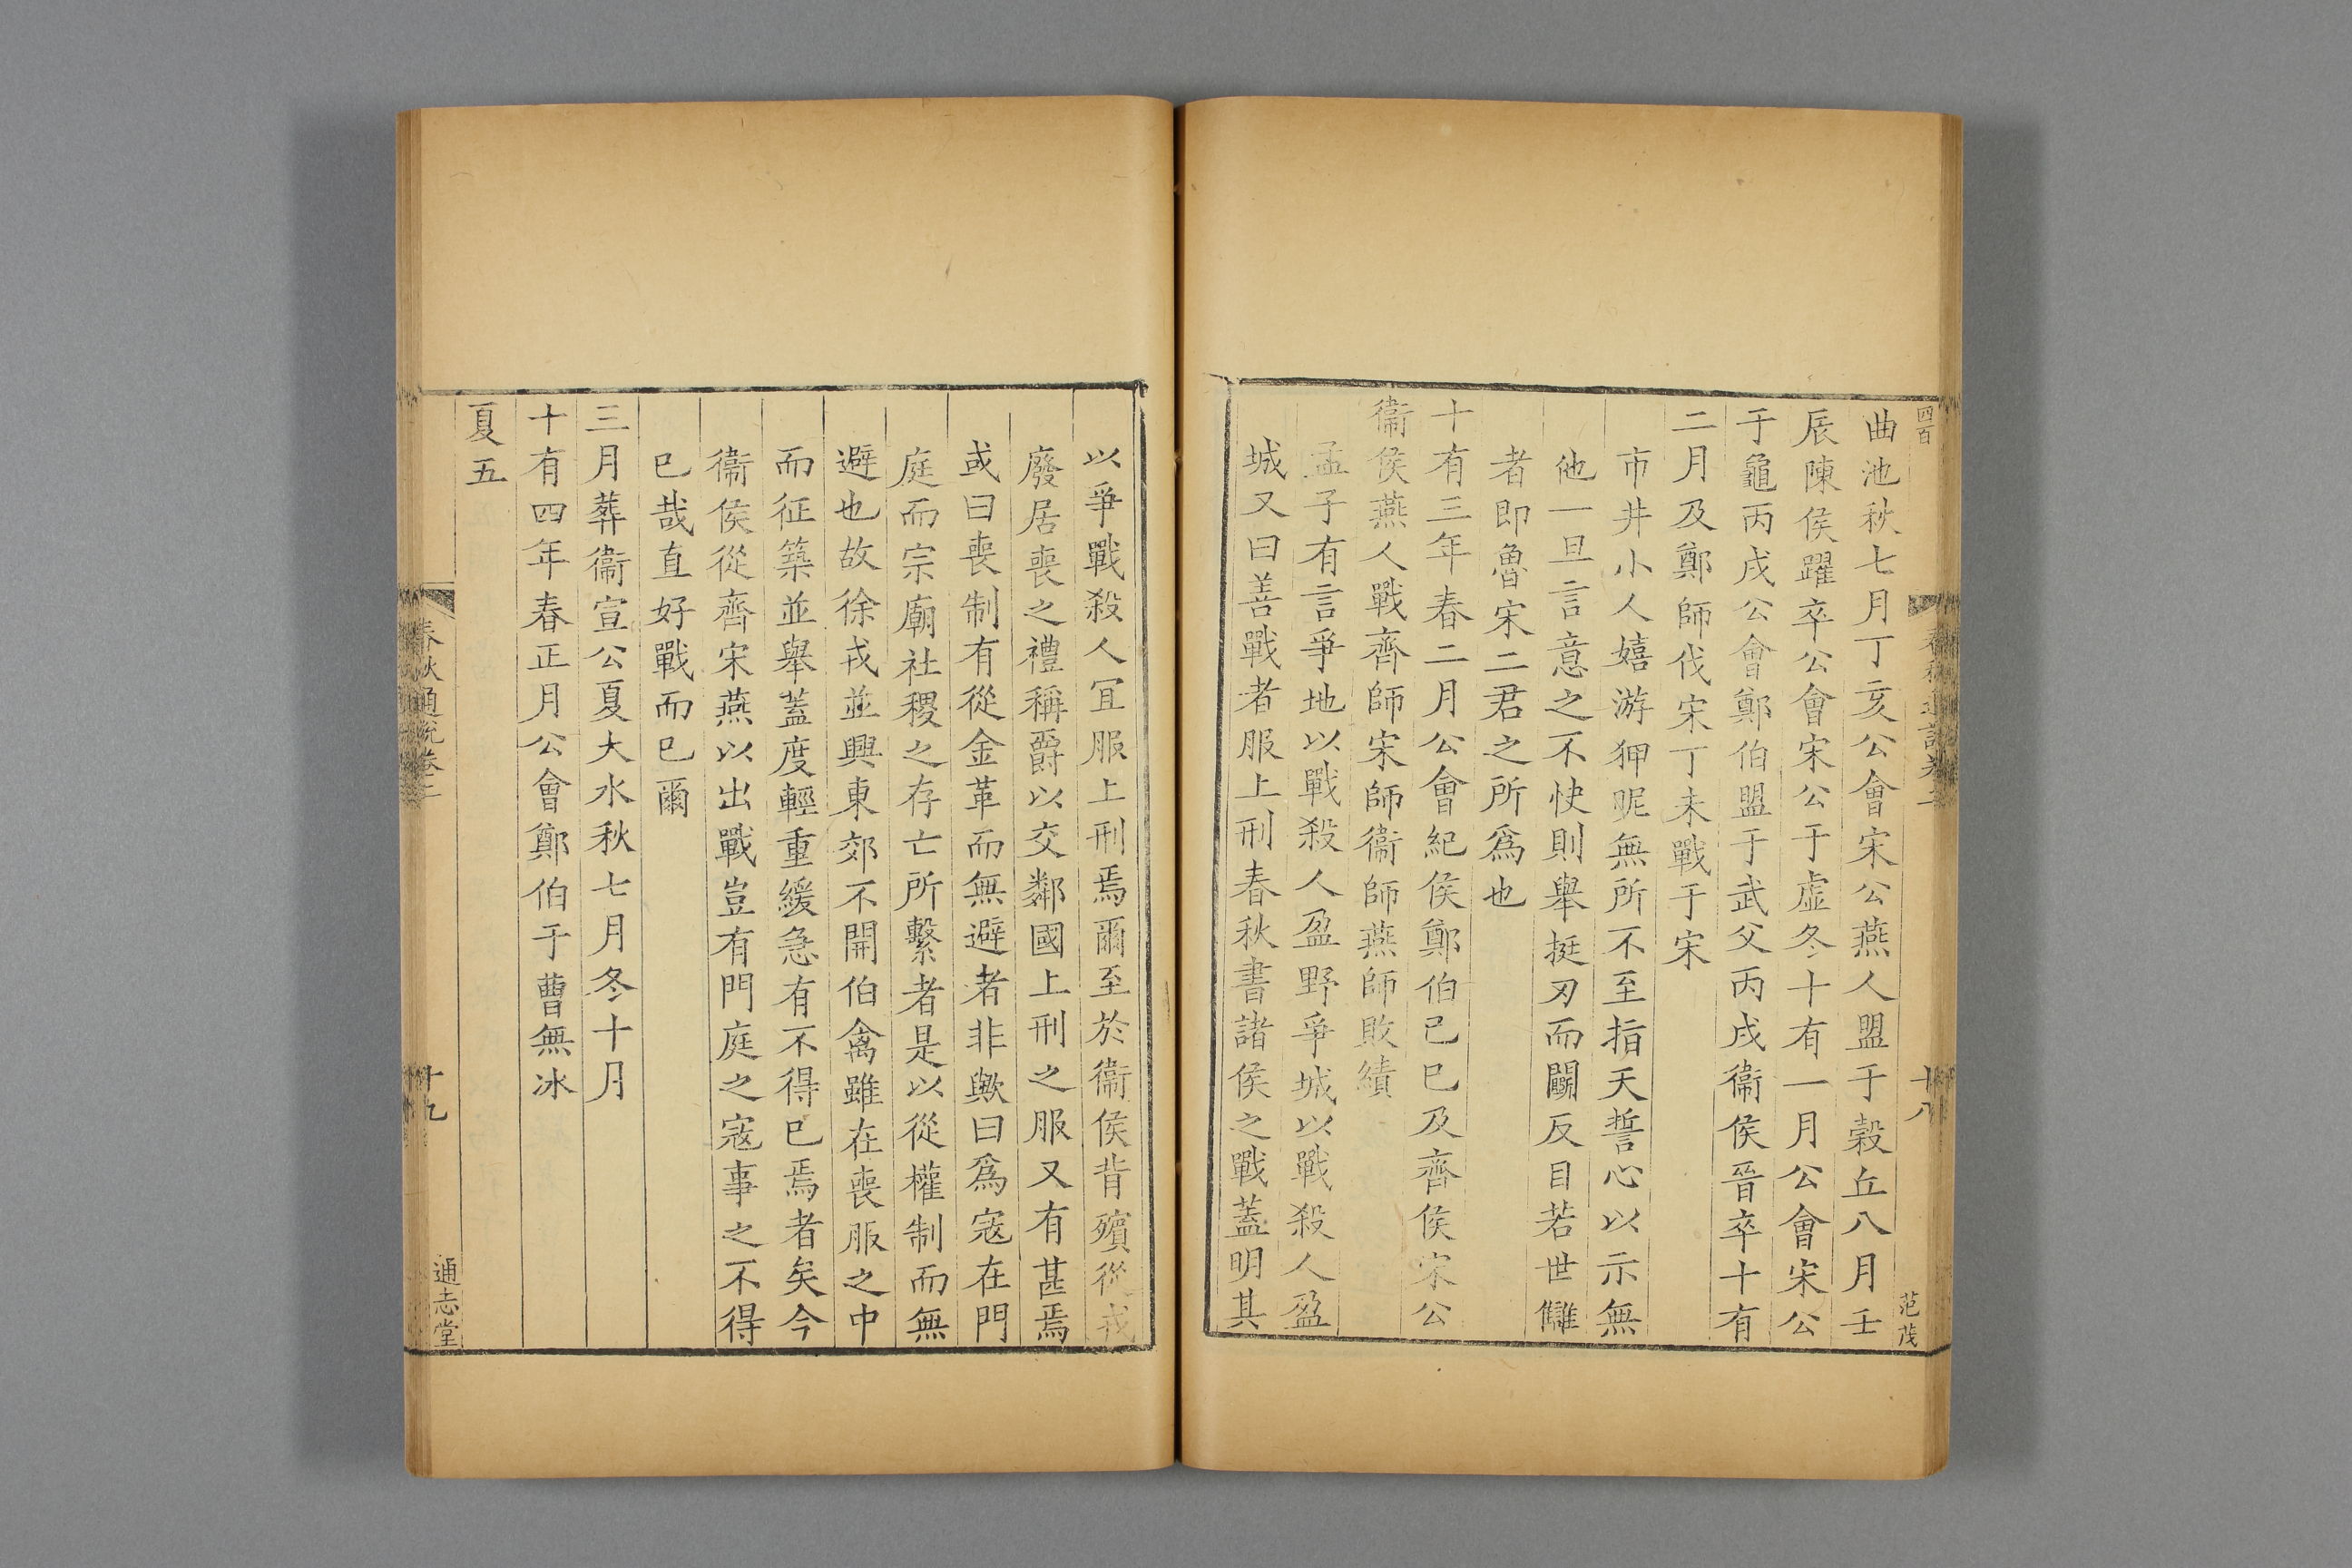 四百
春秋通說卷二
十八
范茂
曲池秋七月丁亥公會宋公燕人盟于穀丘八月壬
辰陳侯躍卒公會宋公于虛冬十有一月公會宋公
于龜丙戌公會鄭伯盟于武父丙戌衞侯晉卒十有
二月及鄭師伐宋丁未戰于宋
市井小人嬉游狎昵無所不至指天誓心以示無
他一旦言意之不快則舉挺刃而鬬反目若世讎
者即魯宋二君之所爲也
十有三年春二月公會紀侯鄭伯己巳及齊侯宋公
衞侯燕人戰齊師宋師衞師燕師敗績
孟子有言爭地以戰殺人盈野爭城以戰殺人盈
城又曰善戰者服上刑春秋書諸侯之戰蓋明其
以爭戰殺人宜服上刑焉爾至於衞侯背殯從戎
廢居喪之禮稱爵以交鄰國上刑之服又有甚焉
或曰喪制有從金革而無避者非歟曰爲寇在門
庭而宗廟社稷之存亡所繫者是以從權制而無
避也故徐戎並興東郊不開伯禽雖在喪服之中
而征築並舉蓋度輕重緩急有不得已焉者矣今
衞侯從齊宋燕以出戰豈有門庭之寇事之不得
已哉直好戰而已爾
三月葬衞宣公夏大水秋七月冬十月
十有四年春正月公會鄭伯于曹無冰
夏五
春秋通說卷二
十九
通志堂